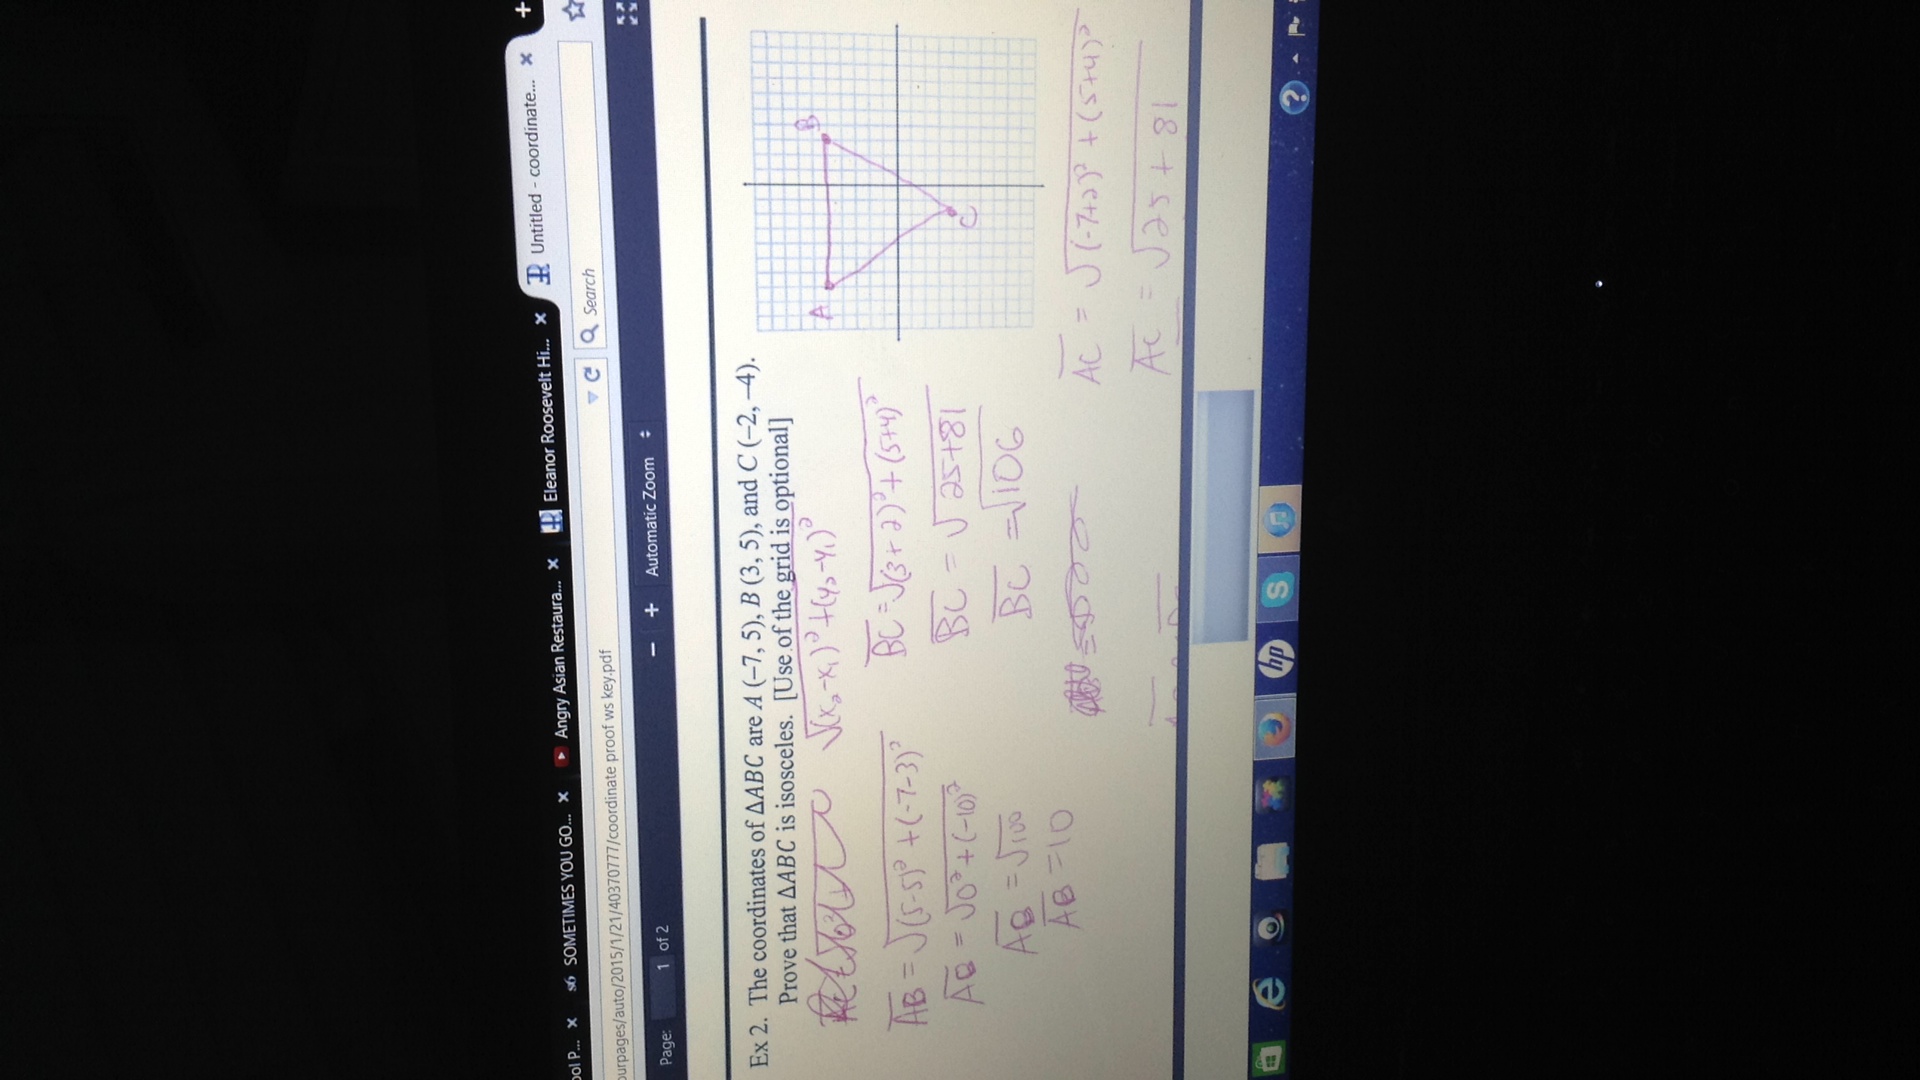 ool P... × s6 SOMETIMES YOU GO... × Angry Asian Restaura... × Eleanor Roosevelt Hi... × Untitled - coordinate... × +
ourpages/auto/2015/1/21/40370777/coordinate proof ws key.pdf
Search
Page: 1 of 2 − + Automatic Zoom
Ex 2. The coordinates of ΔABC are A (–7, 5), B (3, 5), and C (–2, –4).
Prove that ΔABC is isosceles. [Use of the grid is optional]
√(x₂-x₁)²+(y₂-y₁)²
A B
C
AB = √(5-5)² + (-7-3)²
AB = √0² + (-10)²
AB = √100
AB = 10
BC = √(3+2)² + (5+4)²
BC = √25+81
BC = √106
AC = √(-7+2)² + (5+4)²
AC = √25 + 81
hp S ?